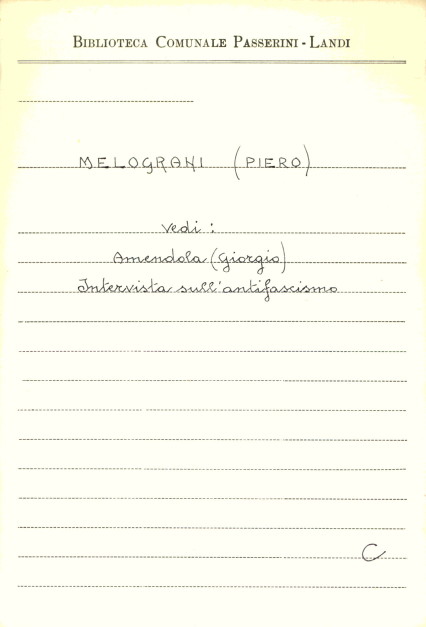 BIBLIOTECA COMUNALE PASSERINI - LANDI
MELOGRANI (PIERO)
Vedi :
Amendola (Giorgio)
Intervista sull'antifascismo
C